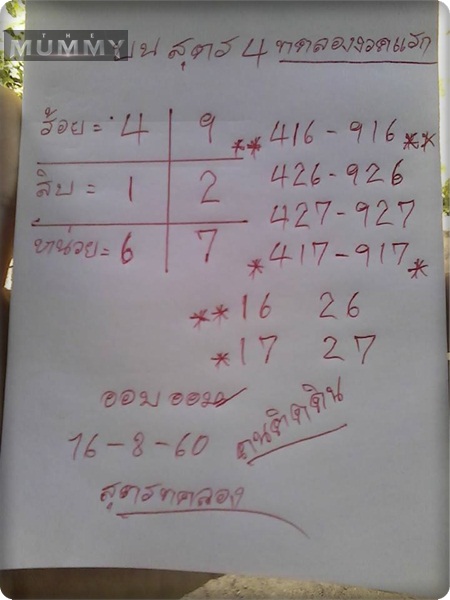 THE
MUMMY บน สูตร 4 ทดลองงวดแรก
ร้อย = 4 9 **416-916**
426-926
สิบ = 1 2
427-927
หน่วย = 6 7 *417-917*
**16 26
*17 27
ออมออม
16-8-60 คนติดดิน
สูตรทดลอง